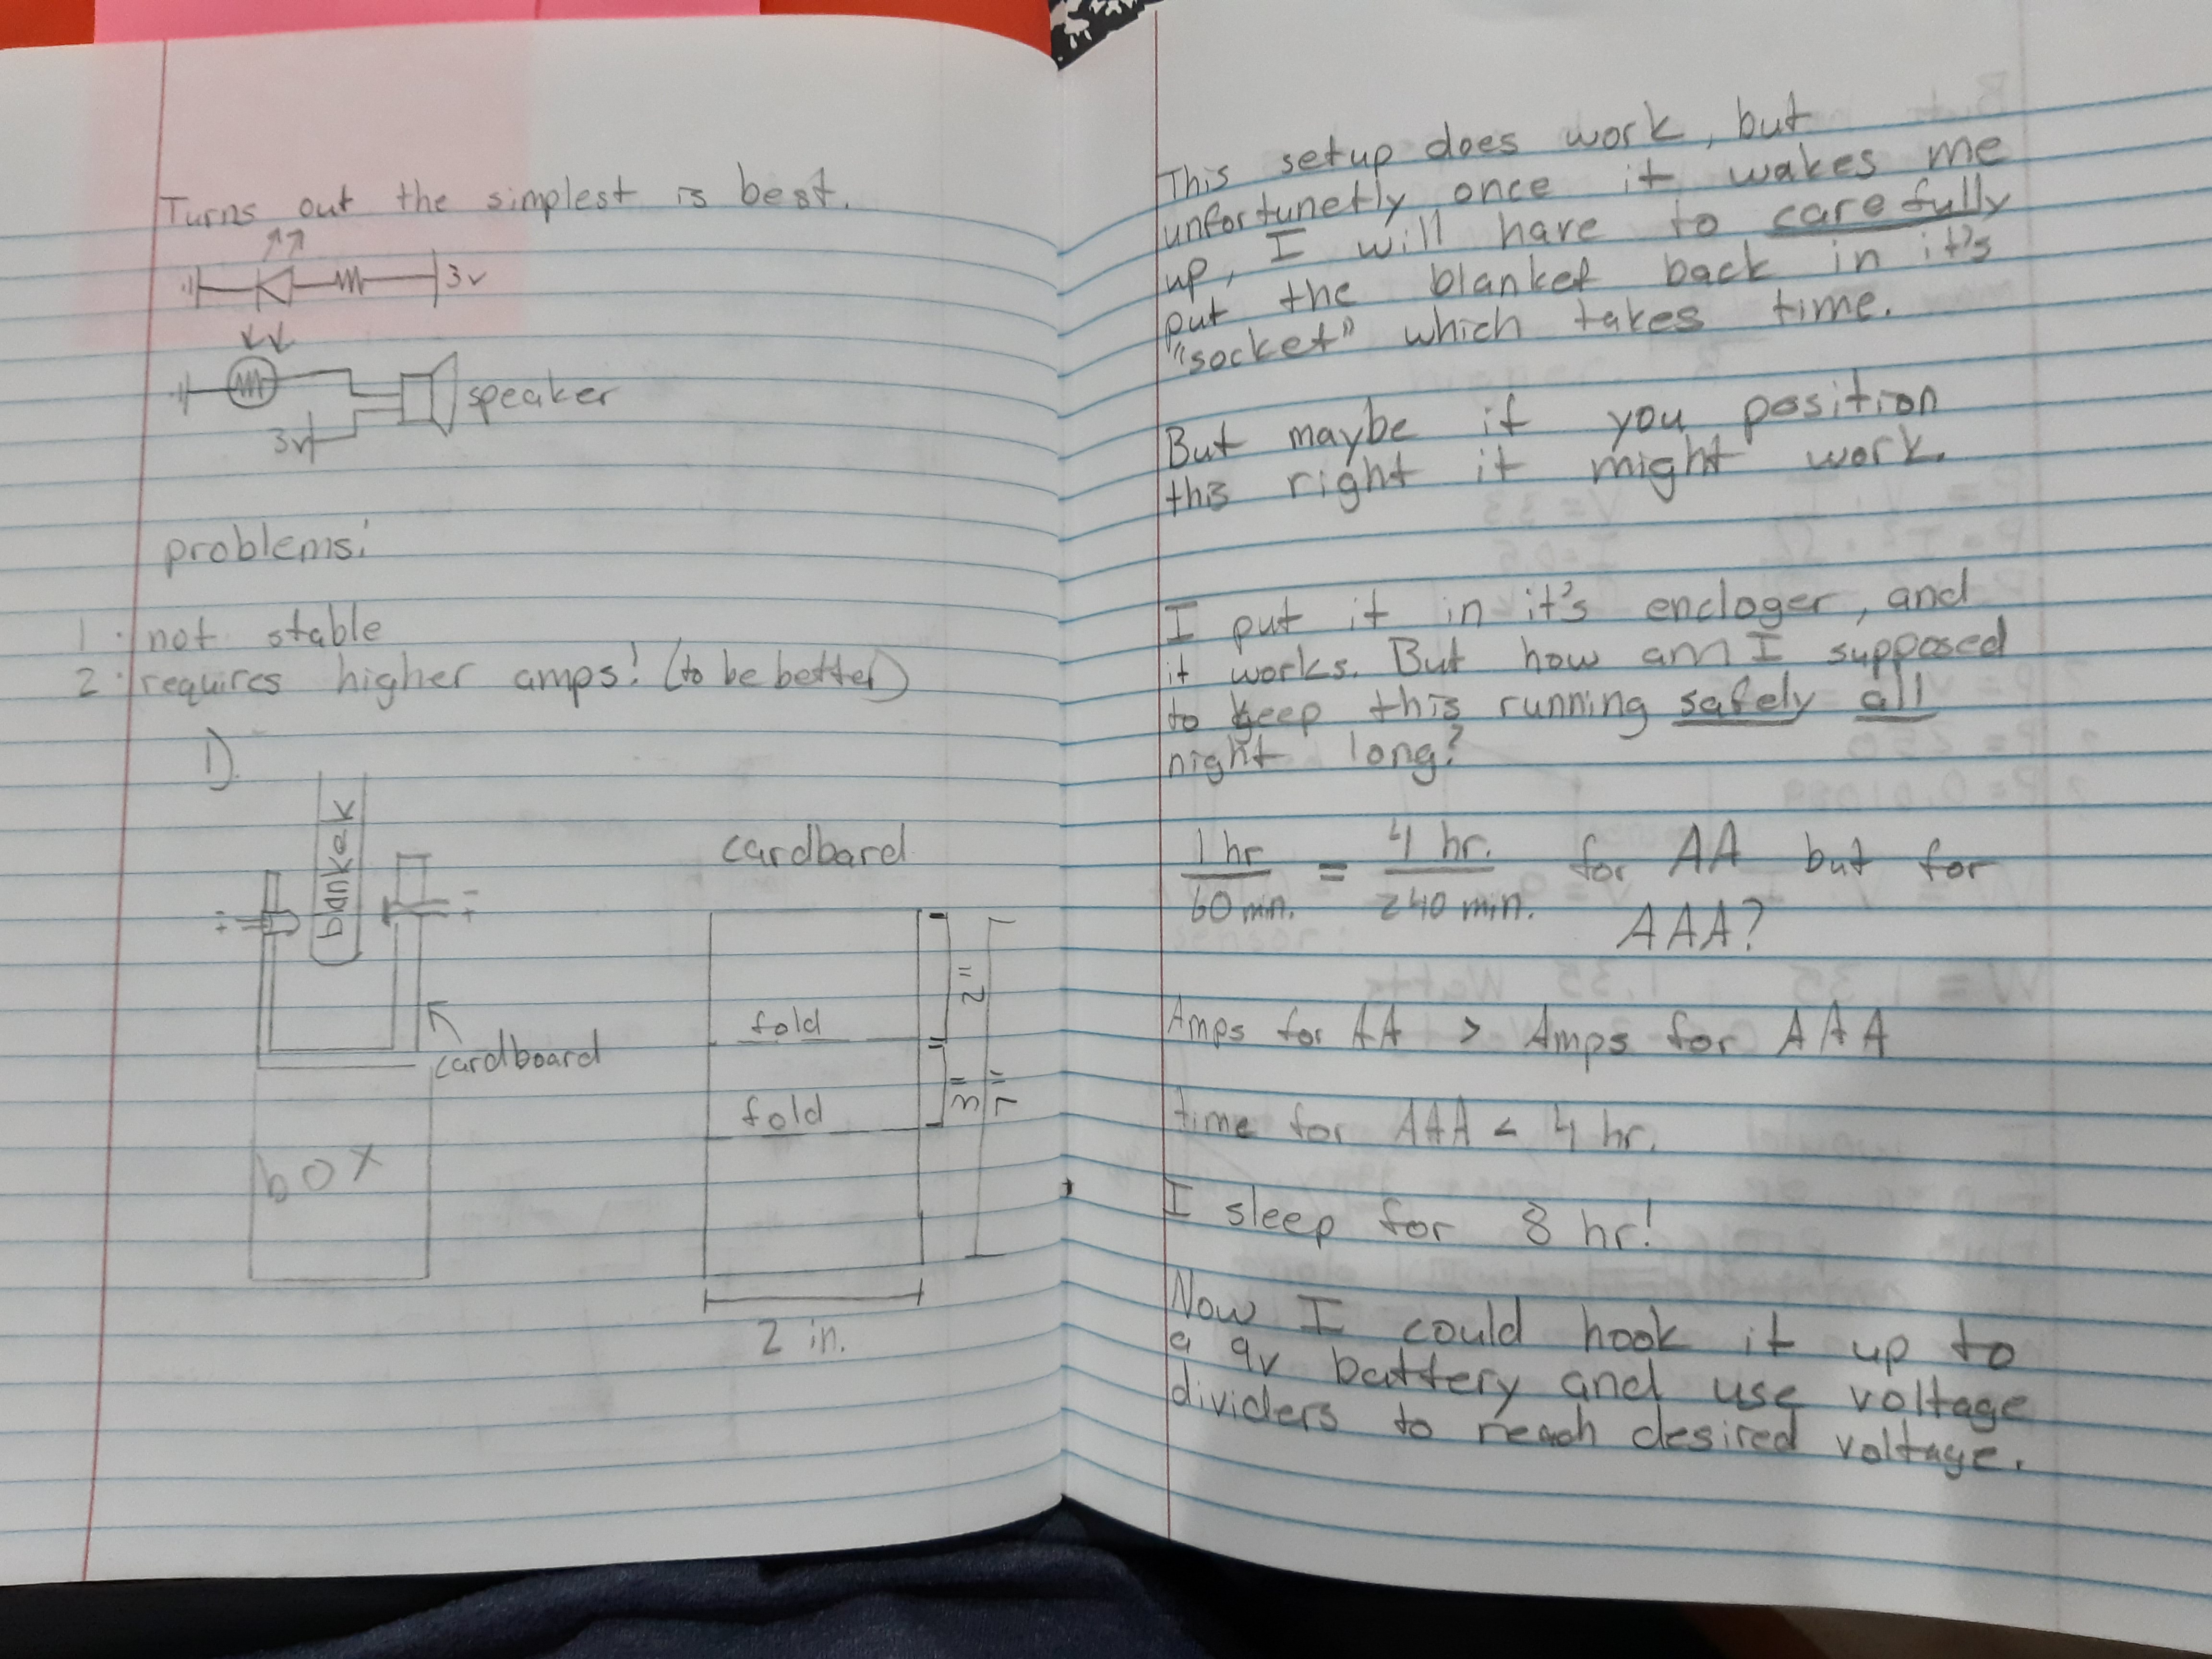 Turns out the simplest is best.
3v
speaker
3v
problems:
1. not stable
2. requires higher amps! (to be better)
1).
blanket
cardbard
fold
2"
cardboard
fold
3"
7"
box
2 in.
This setup does work, but
unfortunetly once it wakes me
up, I will have to carefully
put the blanket back in it's
"socket" which takes time.
But maybe if you position
this right it might work.
I put it in it's encloger, and
it works. But how am I supposed
to keep this running safely all
night long?
1 hr / 60 min. = 4 hr. / 240 min. for AA but for
AAA?
Amps for AA > Amps for AAA
time for AAA < 4 hr.
I sleep for 8 hr!
Now I could hook it up to
a 9v battery and use voltage
dividers to reach desired voltage.